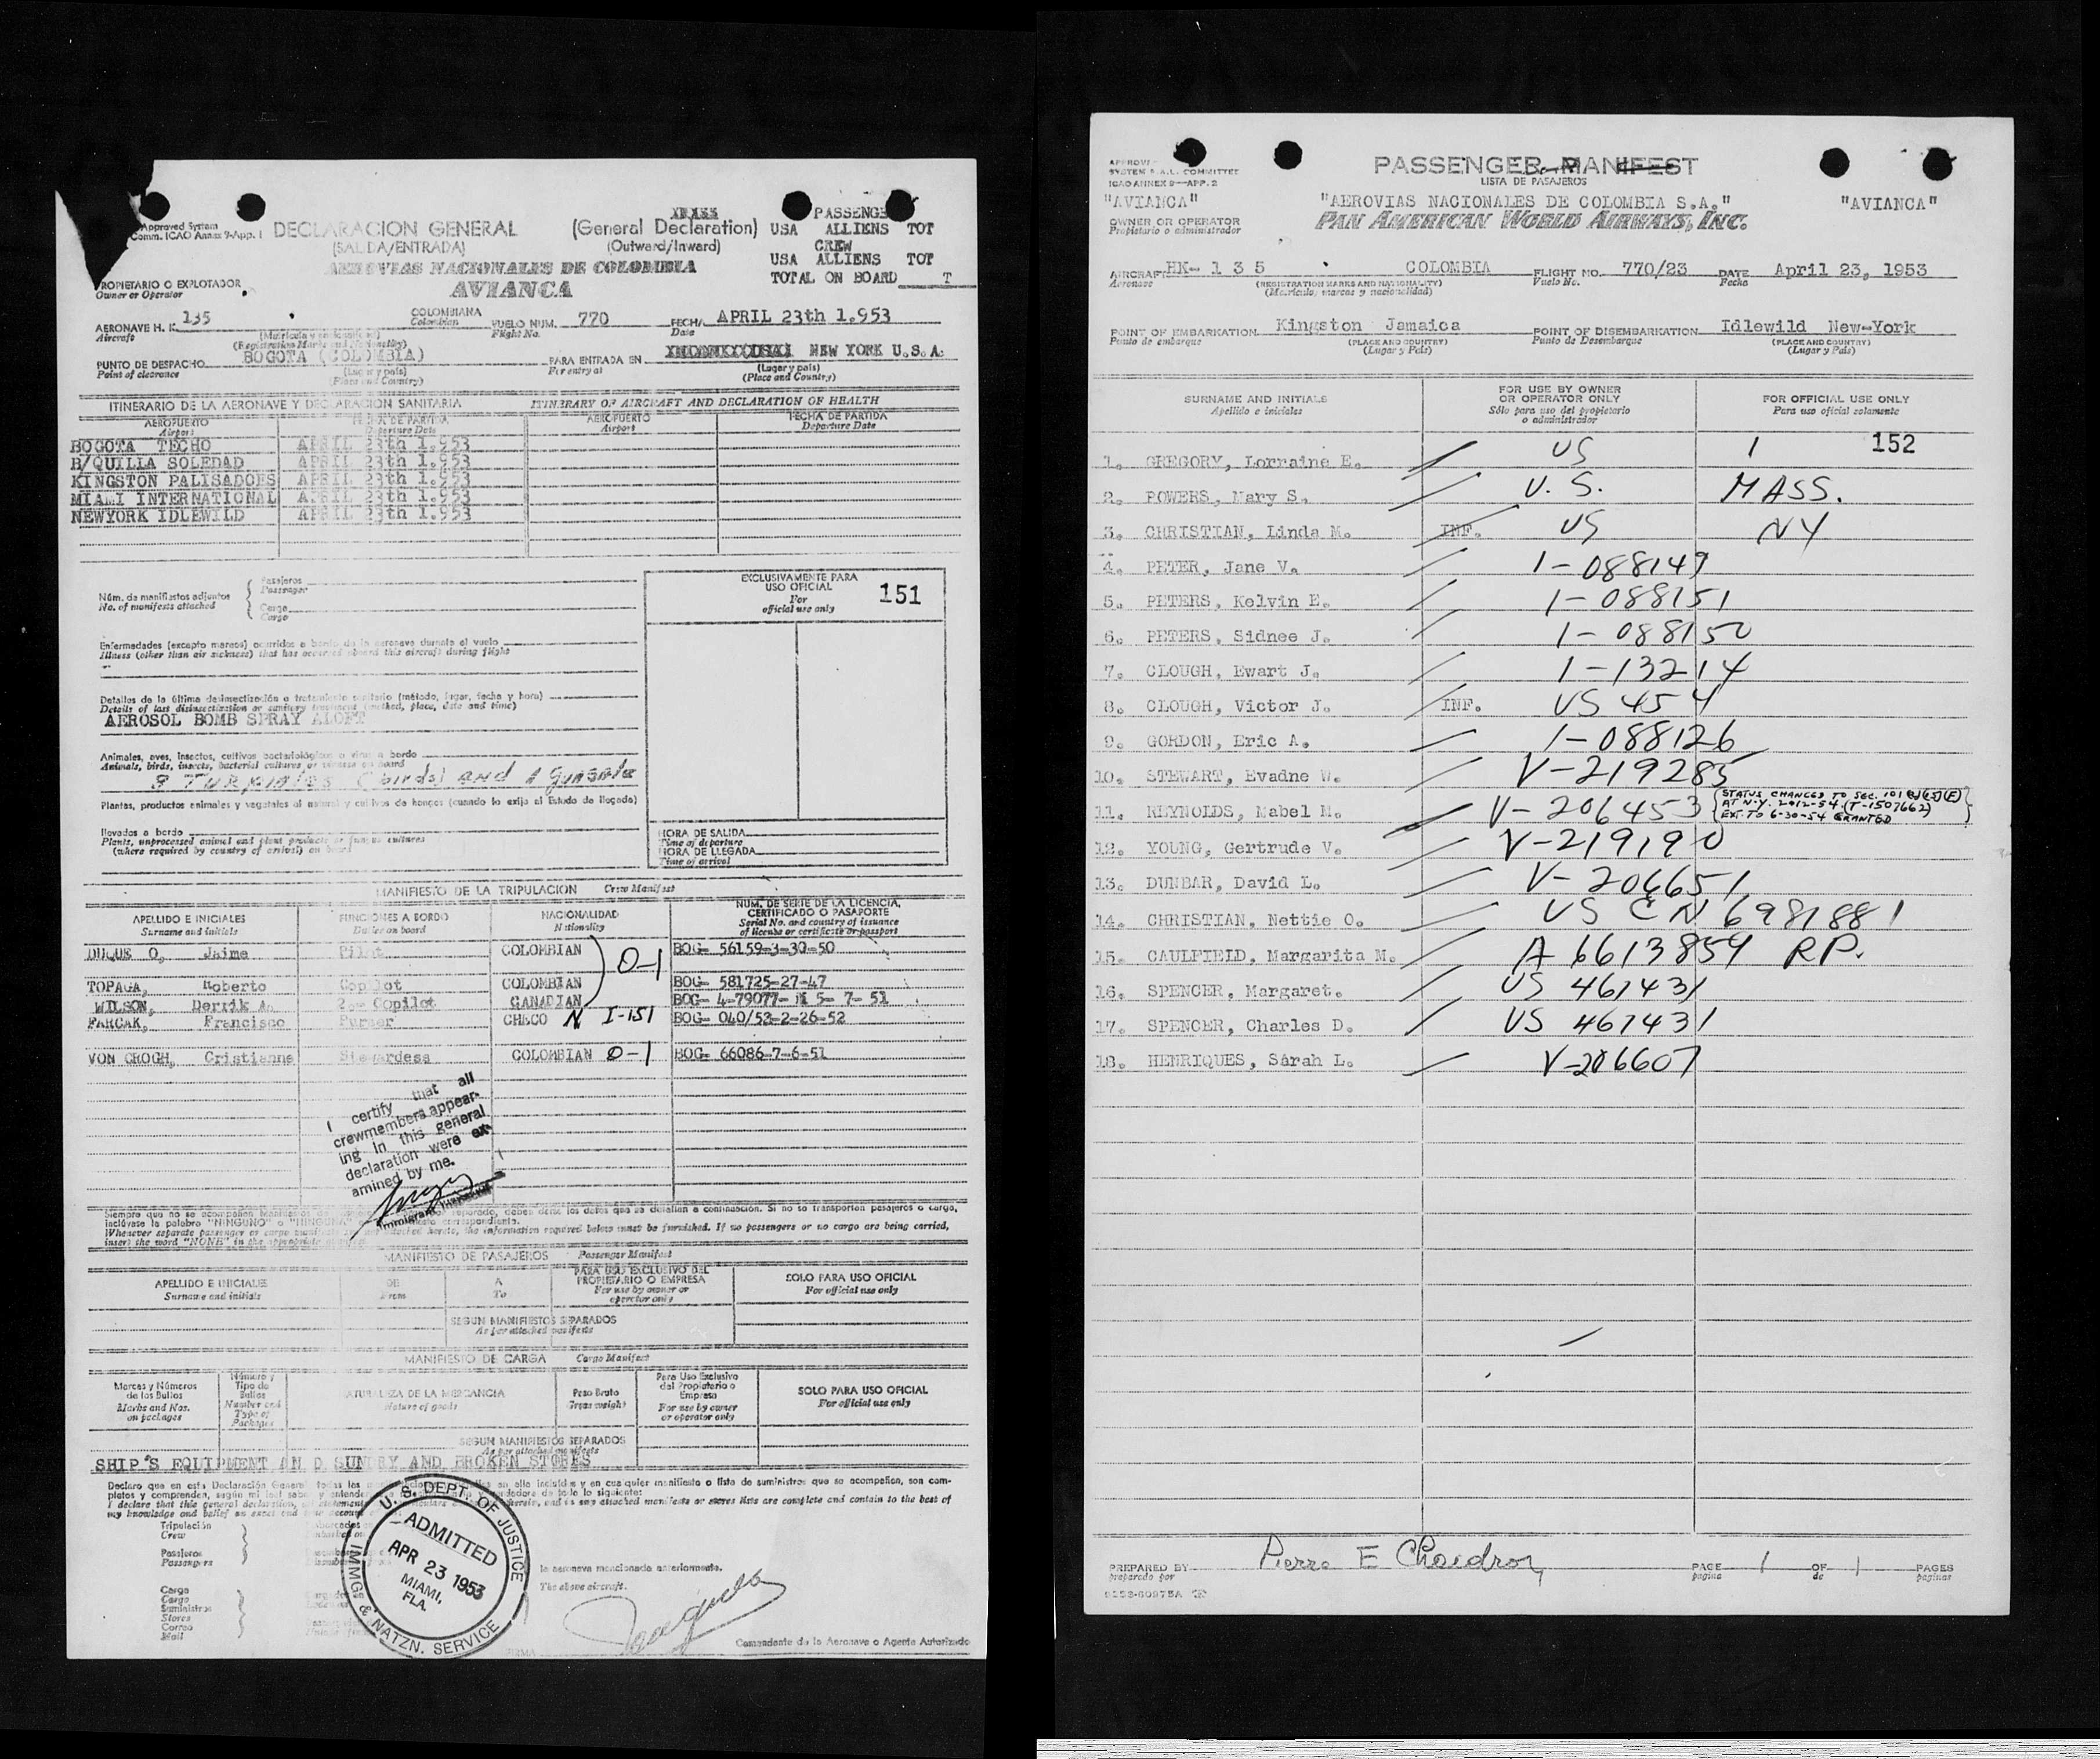 Approved System
Comm. ICAO Annex 9-App. 1
DECLARACION GENERAL
(General Declaration)
(SALIDA/ENTRADA)
(Outward/Inward)
PASSENGE
USA ALLIENS TOT
CREW
USA ALLIENS TOT
TOTAL ON BOARD T
AEROVIAS NACIONALES DE COLOMBIA
AVIANCA
ROPIETARIO O EXPLOTADOR
Owner or Operator
AERONAVE H. K. 135
Aircraft
(Registration Marks and Nationality)
COLOMBIANA
Colombian
VUELO NUM. 770
Flight No.
FECHA APRIL 23th 1.953
Date
PUNTO DE DESPACHO BOGOTA (COLOMBIA)
Point of clearance
(Lugar y país)
(Place and Country)
PARA ENTRADA EN NEW YORK U.S.A.
For entry at
(Lugar y país)
(Place and Country)
ITINERARIO DE LA AERONAVE Y DECLARACION SANITARIA ITINERARY OF AIRCRAFT AND DECLARATION OF HEALTH
AEROPUERTO
Airport
FECHA DE PARTIDA
Departure Date
AEROPUERTO
Airport
FECHA DE PARTIDA
Departure Date
BOGOTA TECHO APRIL 23th 1.953
B/QUILLA SOLEDAD APRIL 23th 1.953
KINGSTON PALISADOES APRIL 23th 1.953
MIAMI INTERNATIONAL APRIL 23th 1.953
NEWYORK IDLEWILD APRIL 23th 1.953
Núm. de manifiestos adjuntos
No. of manifests attached
Pasajeros
Passenger
Carga
Cargo
EXCLUSIVAMENTE PARA
USO OFICIAL
For
official use only
151
Enfermedades (excepto mareos) ocurridas a bordo de la aeronave durante el vuelo
Illness (other than air sickness) that has occurred aboard this aircraft during flight
Detalles de la última desinsectización o tratamiento sanitario (método, lugar, fecha y hora)
Details of last disinsectization or sanitary treatment (method, place, date and time)
AEROSOL BOMB SPRAY ALOFT
Animales, aves, insectos, cultivos bacteriológicos o virus a bordo
Animals, birds, insects, bacterial cultures or viruses on board
(birds) and
Plantas, productos animales y vegetales al natural y cultivos de hongos (cuando lo exija el Estado de llegada)
llevados a bordo
Plants, unprocessed animal and plant products or fungus cultures
(where required by country of arrival) on board
HORA DE SALIDA
Time of departure
HORA DE LLEGADA
Time of arrival
MANIFIESTO DE LA TRIPULACION Crew Manifest
APELLIDO E INICIALES
Surname and initials
FUNCIONES A BORDO
Duties on board
NACIONALIDAD
Nationality
NUM. DE SERIE DE LA LICENCIA,
CERTIFICADO O PASAPORTE
Serial No. and country of issuance
of license or certificate or passport
DUQUE O, Jaime Pilot COLOMBIAN 0-1 BOG- 56159-3-30-50
TOPAGA, Roberto Copilot COLOMBIAN BOG- 581725-27-47
WILSON, Derrik A. 2o- Copilot CANADIAN BOG- 4-79077- M 5- 7- 51
PARCAK, Francisco Purser CHECO N I-151 BOG- 040/52-2-26-52
VON CROGH, Cristianne Stewardess COLOMBIAN 0-1 BOG- 66086-7-6-51
I certify that all
crewmembers appear-
ing in this general
declaration were ex-
amined by me.
Whenever separate passenger or cargo manifests are not attached hereto, the information required below must be furnished. If no passengers or no cargo are being carried,
insert the word "NONE" in the appropriate
MANIFIESTO DE PASAJEROS Passenger Manifest
APELLIDO E INICIALES
Surname and initials
DE
From
A
To
PARA USO EXCLUSIVO DEL
PROPIETARIO O EMPRESA
For use by owner or
operator only
SOLO PARA USO OFICIAL
For official use only
SEGUN MANIFIESTOS SEPARADOS
As per attached manifests
MANIFIESTO DE CARGA Cargo Manifest
Marcas y Números
de los Bultos
Marks and Nos.
on packages
Número y
Tipo de
Bultos
Number and
Type of
Packages
NATURALEZA DE LA MERCANCIA
Nature of goods
Peso Bruto
Gross weight
Para Uso Exclusivo
del Propietario o
Empresa
For use by owner
or operator only
SOLO PARA USO OFICIAL
For official use only
SEGUN MANIFIESTOS SEPARADOS
As per attached manifests
SHIP'S EQUIPMENT AN D SUNDRY AND BROKEN STORES
my knowledge and belief
Tripulación
Crew
Pasajeros
Passengers
Carga
Cargo
Suministros
Stores
Correo
Mail
la aeronave mencionada anteriormente.
The above aircraft.
U. S. DEPT. OF JUSTICE
ADMITTED
APR 23 1953
MIAMI,
FLA.
IMMG. & NATZN. SERVICE
FIRMA
Comandante de la Aeronave o Agente Autorizado
SYSTEM S.A.L. COMMITTEE
ICAO ANNEX 9—APP. 2
PASSENGER MANIFEST
LISTA DE PASAJEROS
"AVIANCA" "AEROVIAS NACIONALES DE COLOMBIA S.A." "AVIANCA"
OWNER OR OPERATOR
Propietario o administrador
PAN AMERICAN WORLD AIRWAYS, INC.
AIRCRAFT HK- 1 3 5 COLOMBIA FLIGHT NO. 770/23 DATE April 23, 1953
Aeronave (REGISTRATION MARKS AND NATIONALITY) Vuelo No. Fecha
(Matrícula, marcas y nacionalidad)
POINT OF EMBARKATION Kingston Jamaica POINT OF DISEMBARKATION Idlewild New-York
Punto de embarque (PLACE AND COUNTRY) Punto de Desembarque (PLACE AND COUNTRY)
(Lugar y País) (Lugar y País)
SURNAME AND INITIALS
Apellido e iniciales
FOR USE BY OWNER
OR OPERATOR ONLY
Sólo para uso del propietario
o administrador
FOR OFFICIAL USE ONLY
Para uso oficial solamente
1. GREGORY, Lorraine E. US 1 152
2. POWERS, Mary S. U. S. MASS.
3. CHRISTIAN, Linda M. INF. US NY
4. PETER, Jane V. 1-088149
5. PETERS, Kelvin E. 1-088151
6. PETERS, Sidnee J. 1-088150
7. CLOUGH, Ewart J. 1-13214
8. CLOUGH, Victor J. INF. US 454
9. GORDON, Eric A. 1-088126
10. STEWART, Evadne W. V-219285
11. REYNOLDS, Mabel M. V-206453 STATUS CHANGED TO SEC. 101
AT N.Y. 2-12-54 (T-1507662)
EXT. TO 6-30-54 GRANTED
12. YOUNG, Gertrude V. V-219190
13. DUNBAR, David L. V-206651
14. CHRISTIAN, Nettie O. US CN 6981881
15. CAULFIELD, Margarita M. A 6613859 RP.
16. SPENCER, Margaret. US 461431
17. SPENCER, Charles D. US 461431
18. HENRIQUES, Sarah L. V-206607
PREPARED BY Pierre E
preparado por
PAGE 1 OF 1 PAGES
página de páginas